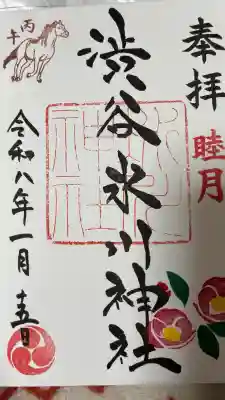 奉拝
睦月
渋谷氷川神社
丙午
令和八年一月十五日